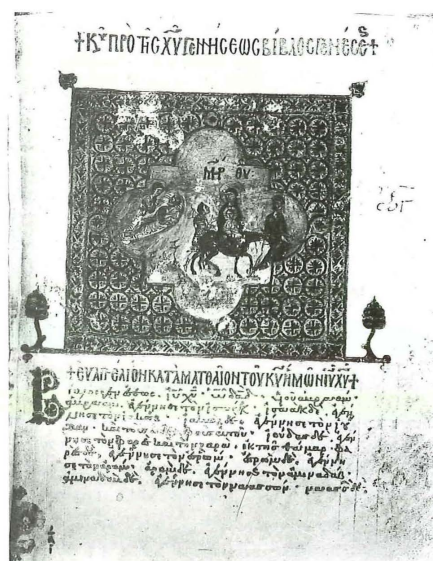 +ΚΥ ΠΡΟ ΤΗΣ ΧΥ ΓΕΝΝΗΣΕΩΣ ΒΙΒΛΟΣ ΓΕΝΕΣΕ+
ΜΗΡ ΘΥ
+ΕΥΑΓΓΕΛΙΟΝ ΚΑΤΑ ΜΑΤΘΑΙΟΝ ΤΟΥ ΚΥ ΗΜΩΝ ΙΥ ΧΥ+
Βίβλος γενέσεως ιυ χυ υυ δαδ υιου αβρααμ
αβρααμ εγέννησε τον ισαακ ισαακ δε εγέν
νησε τον ιακωβ ιακωβ δε εγέννησε τον ιου
δαν και τους αδελφους αυτου ιουδας δε εγέν
νησε τον φαρες και τον ζαρα εκ της θαμαρ φα
ρες δε εγέννησε τον εσρωμ εσρωμ δε εγέννη
σε τον αραμ αραμ δε εγέννησε τον αμιναδαβ
αμιναδαβ δε εγέννησε τον ναασσων ναασσων δε